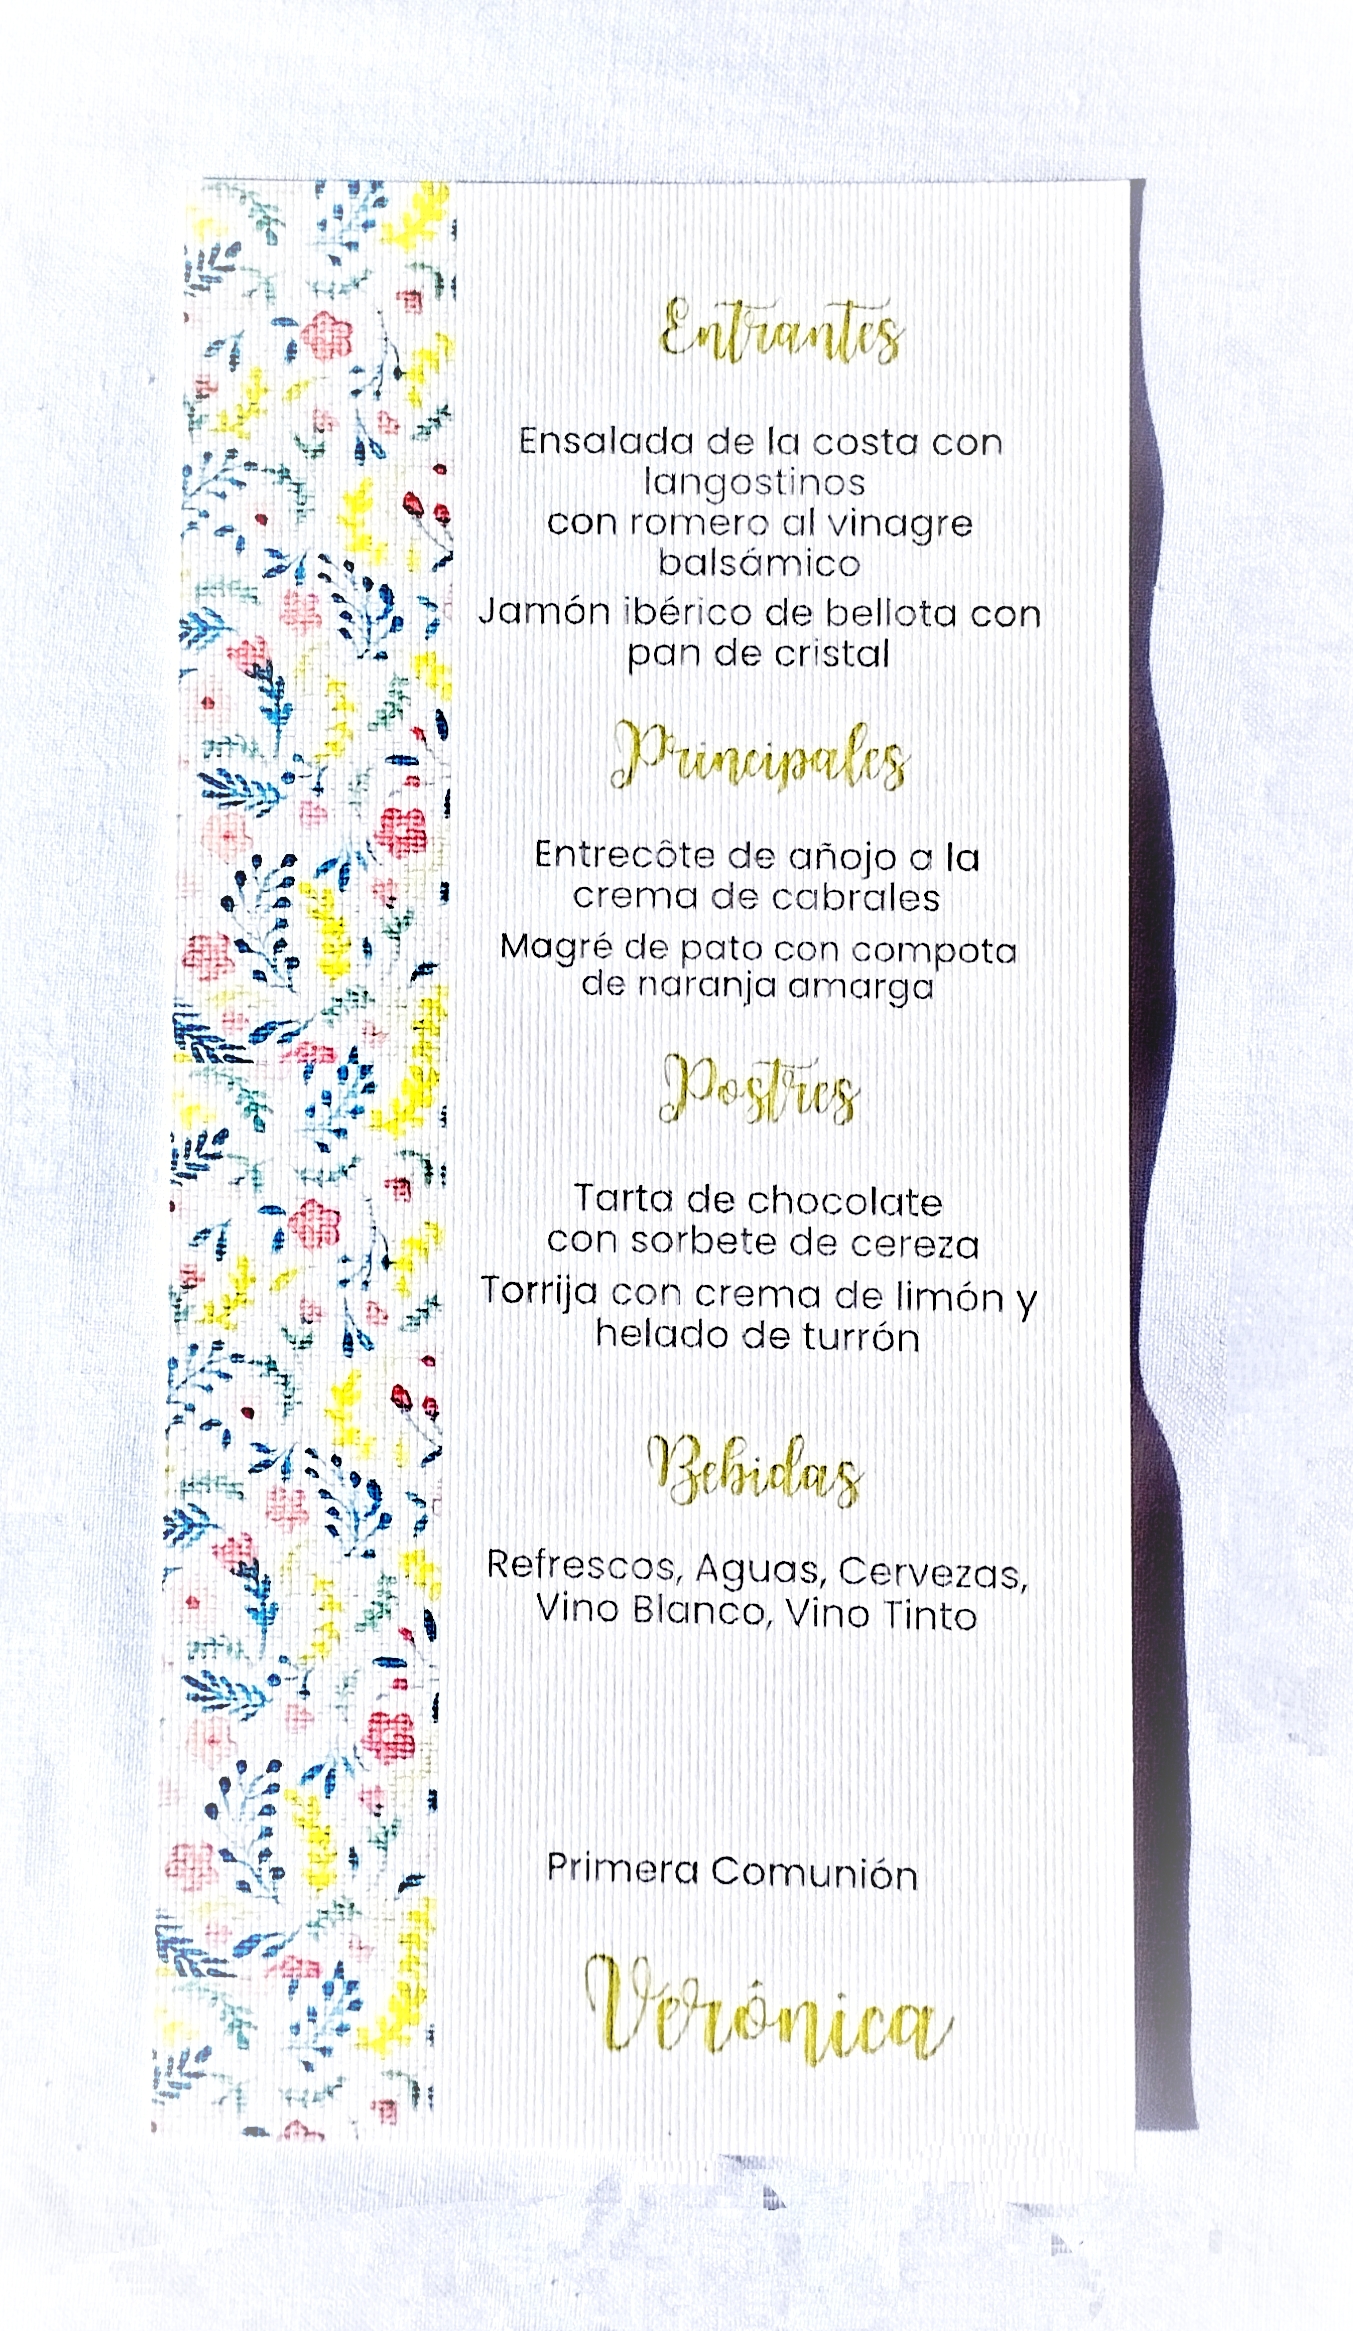 Entrantes
Ensalada de la costa con
langostinos
con romero al vinagre
balsámico
Jamón ibérico de bellota con
pan de cristal
Principales
Entrecôte de añojo a la
crema de cabrales
Magré de pato con compota
de naranja amarga
Postres
Tarta de chocolate
con sorbete de cereza
Torrija con crema de limón y
helado de turrón
Bebidas
Refrescos, Aguas, Cervezas,
Vino Blanco, Vino Tinto
Primera Comunión
Verónica